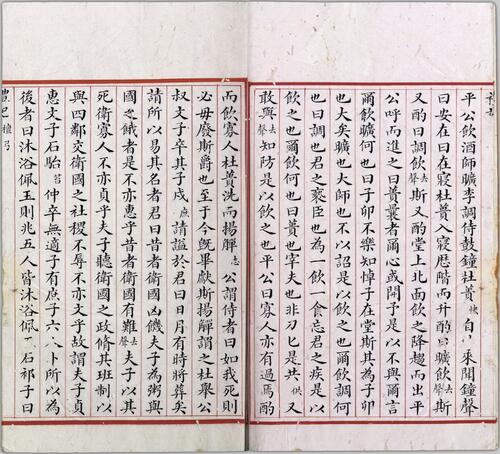 平公飲酒師曠李調侍鼓鐘杜蕢快自外來聞鐘聲
曰安在曰在寢杜蕢入寢歷階而升酌曰曠飲去聲斯
又酌曰調飲去聲斯又酌堂上北面飲之降趨而出平
公呼而進之曰蕢曩者爾心或開予是以不與爾言
爾飲曠何也曰子卯不樂知悼子在堂斯其為子卯
也大矣曠也大師也不以詔是以飲之也爾飲調何
也曰調也君之褻臣也為一飲一食忘君之疾是以
飲之也爾飲何也曰蕢也宰夫也非刀匕是共供又
敢與去聲知防是以飲之也平公曰寡人亦有過焉酌
而飲寡人杜蕢洗而揚觶志公謂侍者曰如我死則
必毋廢斯爵也至于今既畢獻斯揚觶謂之杜舉公
叔文子卒其子戍庶請諡於君曰日月有時將葬矣
請所以易其名者君曰昔者衛國凶饑夫子為粥與
國之餓者是不亦惠乎昔者衛國有難去聲夫子以其
死衛寡人不亦貞乎夫子聽衛國之政脩其班制以
與四鄰交衛國之社稷不辱不亦文乎故謂夫子貞
惠文子石駘苔仲卒無適子有庶子六人卜所以為
後者曰沐浴佩玉則兆五人皆沐浴佩玉石祁子曰
禮記 檀弓